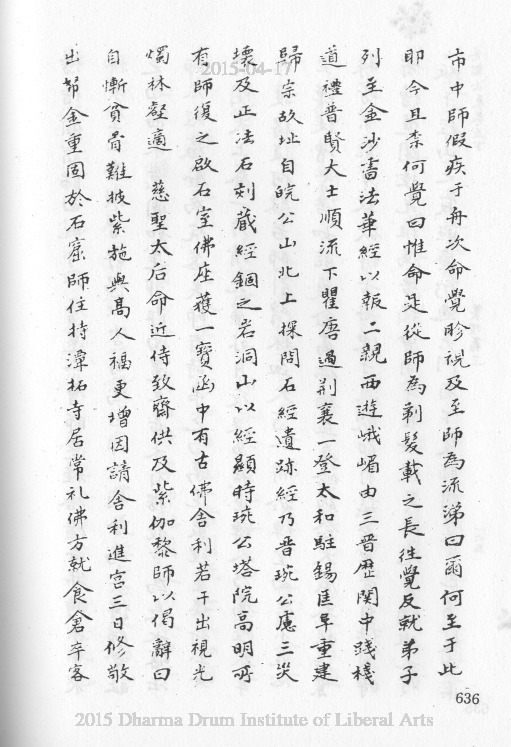 市中師假疾于舟次命覺眕視及至師為流涕曰爾何至于此
即今且柰何覺曰惟命是從師為剃髮載之長往覺反就弟子
列至金沙書法華經以報二親西遊峨嵋由三晉歷関中踐棧
道禮普賢大士順流下瞿唐過荆襄一登太和駐錫匡阜重建
歸宗故址自皖公山北上探問石經遺跡經乃晉琬公慮三災
壞及正法石刻蔵經錮之岩洞山以經顯時琬公塔院高明所
有師復之啟石室佛座獲一寶函中有古佛舍利若干出視光
燭林壑適 慈聖太后命近侍致齋供及紫伽黎師以偈辭曰
自慚貧骨難披紫施與高人福更增因請舍利進宮三日修敬
出帑金重固於石窟師住持潭柘寺居常礼佛方就食會卒客
636
2015-04-17
2015 Dharma Drum Institute of Liberal Arts